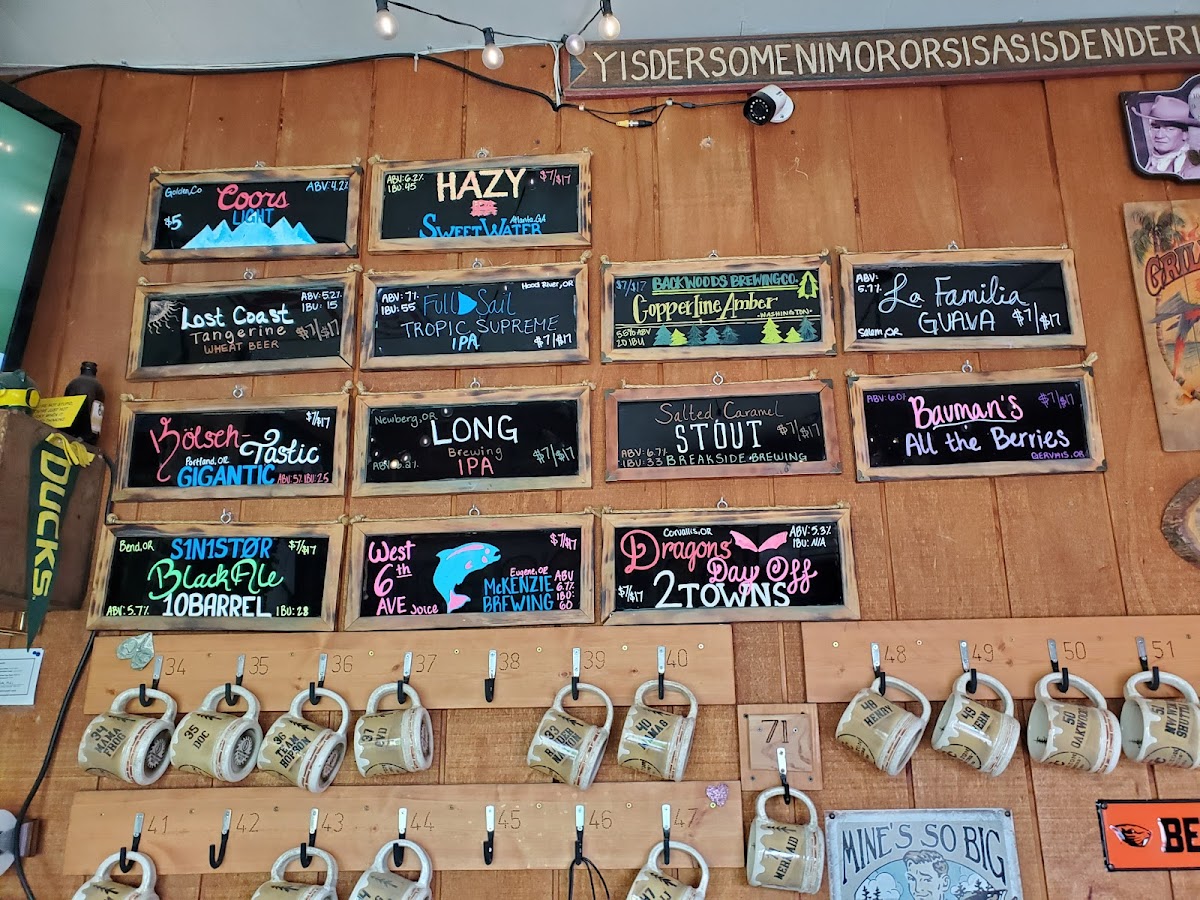 YISDERSOMENIMORORSISASISDENDERW
Golden, Co
ABV: 4.2%
Coors
LIGHT
$5
ABV: 6.2%
IBU: 45
HAZY
$7/$17
Atlanta, GA
SWEETWATER
ABV: 5.2%
IBU: 15
Lost Coast
Tangerine
$7/$17
WHEAT BEER
ABV: 7%
IBU: 55
Full Sail
Hood River, OR
TROPIC SUPREME
IPA
$7/$17
$7/$17
BACKWOODS BREWING CO.
Copperline Amber
-WASHINGTON-
20 IBU
ABV:
La Familia
GUAVA
$7/$17
Salem, OR
$7/$17
Kölsch-
Tastic
Portland, OR
GIGANTIC
ABV: 5% IBU: 25
Newberg, OR
LONG
Brewing
IPA
ABV: 6.2%
$7/$17
Salted Caramel
STOUT
$7/$17
ABV: 6.7%
IBU: 33
BREAKSIDE BREWING
ABV: 6.0%
Bauman's
$7/$17
All the Berries
GERVAIS, OR
Bend, OR
S1N1STØR
$7/$17
Black Ale
10BARREL
ABV: 5.7%
IBU: 28
West
6th
AVE Joice
$7/$17
Eugene, OR
McKENZIE
BREWING
ABV
6.7%
IBU:
60
Corvallis, OR
ABV: 5.3%
IBU: N/A
Dragons
Day Off
$7/$17
2TOWNS
DUCKS
GRILL
34 35 36 37 38 39 40
48 49 50 51
34
MAMA
THUG
35
DOC
36
TEAM
HOPSON
37
39
40
48
HENRY
49
50
OAKWOOD
51
71
MERMAID
41 42 43 44 45 46 47
47
MINE'S SO BIG
BE